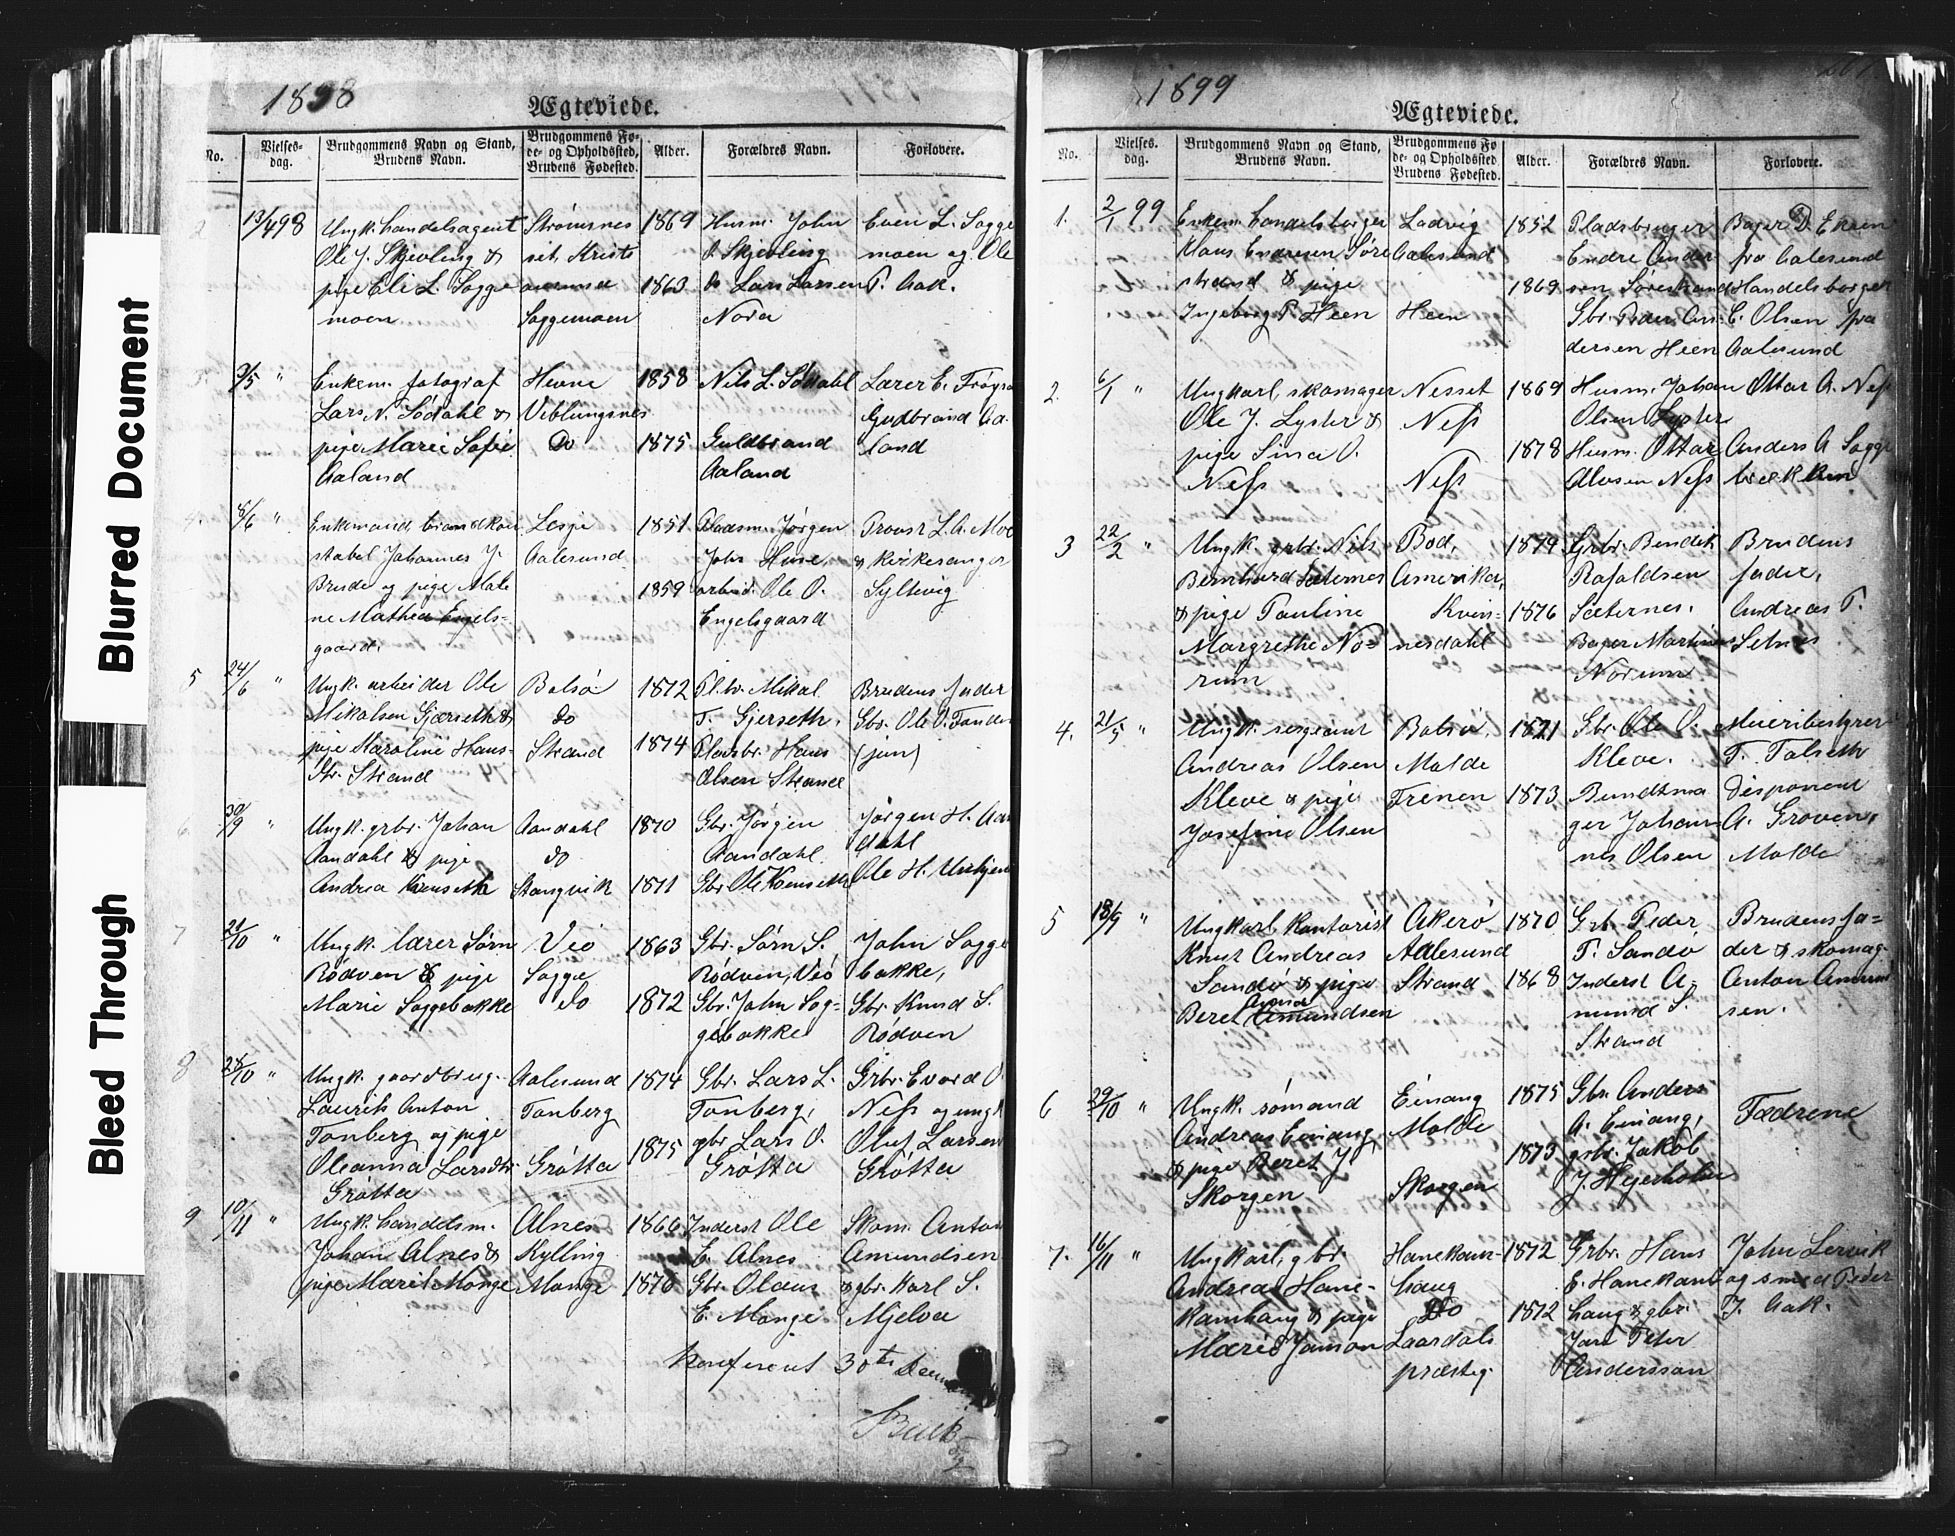 Blurred Document
Bleed Through
1898
Ægteviede.
No.
Vielses-
dag.
Brudgommens Navn og Stand,
Brudens Navn.
Brudgommens Fø-
de- og Opholdssted,
Brudens Fødested.
Alder.
Forældres Navn.
Forlovere.
13/4 98
Ungk. handelsagent
Ole J. Skjevling &
pige Eli L. Sogge
moen
Strømsnes
Soggemoen
1869
1863
Husm. John
Skjevling
Lars Larsen
Nora
Even L. Sogge
moen og Ole
T. Aak.
2/5 "
Enkem. fotograf
Lars N. Södahl &
pige Marie Sofie
Aaland
Hevne
Veblungsnes
Do
1858
1875
Nils L. Södahl
Guldbrand
Aaland
Lærer E.
Gudbrand Aa
land
4.
5/6 "
Enkemand, brandkon
stabel Johannes J.
Brude og pige Male
ne Mathea Engels-
gaard.
Lesje
Aalesund
1851
1859
Pladsm. Jörgen
Johs Huse,
arbeid. Ole O.
Engelsgaard
Provst L. A. Moe
& kirkesanger
Syltevig
5
24/6 "
Ungk. arbeider Ole
Mikalsen Gjærseth &
pige Karoline Hans-
dtr. Strand
Bolsö
do
Strand
1872
1874
Mikal
T. Gjerseth.
Pladsbr. Hans
Olsen Strand
Brudens fader
Gbr. Ole O.
(jun)
6
30/9 "
Ungk. grbr. Johan
Aandahl & pige
Andrea
Aandahl
do
Stangvik
1870
1871
Gbr. Jörgen
Aandahl.
Gbr. Ole
Jörgen H. Aan
dahl
Ole H.
7
21/10 "
Ungk. lærer Sörn
Rödven & pige
Marie Soggebakke
Veö
Sogge
do
1863
1872
Gbr. Sörn S.
Rödven, Veö
Gbr. John Sog-
gebakke
John Sogge
bakke,
Gbr. Knud S.
Rödven
8
28/10 "
Ungk. gaardbrug.
Laurits Anton
Tonberg og pige
Oleanna Larsdtr.
Gröttа
Aalesund
Tonberg
Grötta
1874
1875
Gbr. Lars L.
Tonberg,
gbr Lars O.
Grötta
Grbr. Evard O.
Ness og ungk
Oluf Larsen
Grötta
9
10/11 "
Ungk. handelsm.
Johan Alnes &
pige Marit Monge
Alnes
Kylling
Monge
1866
1870
Inderst Ole
E. Alnes
Gbr. Olaus
E. Monge
Skom. Anton
Amundsen
& gbr. Karl S.
Mjelva
Konfereret 30te
1899
Ægteviede.
No.
Vielses-
dag.
Brudgommens Navn og Stand,
Brudens Navn.
Brudgommens Fø
de- og Opholdssted
Brudens Fødested.
Alder.
Forældres Navn.
Forlovere.
1.
2/1 99
Enkem. handelsborger
Klaus Endresen Söre
strand & pige
Ingeborg P. Heen
Ladvig
Aalesund
Heen
1852
1869
Pladsbruger
Endre Ander
sen Sörestrand
Gbr. Peder An-
dersen Heen
Bager D.
fra Aalesund
Handelsborger
E. Olsen fra
Aalesund
2.
6/1 "
Ungkarl, skomager
Ole J. Lyster &
pige Sina O.
Ness
Nesset
Ness
Ness
1869
1878
Husm. Johan
Olsen Lyster
Husm. Ottar
Ness
Ottar A. Ness
Anders A Sogge
3
22/2 "
Ungk. grbr. Nils
Bernhard Sæternes
& pige Pauline
Margrethe No-
rum
Bod,
Amerika,
Kvin-
nesdahl
1879
1876
Grbr. Bendik
Rafaldsen
Sæternes.
Bager Martinus
Norum
Brudens
fader,
Andreas P.
Setnes
4.
21/5 "
Ungk. sergeant
Andreas Olsen
Kleve & pige
Josefine Olsen
Bolsö
Molde
Frenen
1871
1873
Gbr. Ole O.
Kleve.
Bundtma
ger Johan-
nes Olsen
Meieribestyrer
T. Talseth
Disponent
A. Groven,
Molde
5
18/9 "
Ungkarl, kontorist
Knut Andreas
Sandö & pige
Beret Amundsen
Akerö
Aalesund
Strand
1870
1868
Grb. Peder
T. Sandö
Inderst A-
mund S.
Strand
Brudens fa-
der & skomag-
Anton Amund
sen.
6
29/10 "
Ungk. sömand
Andreas Einang
& pige Beret J.
Skorgen
Einang
Molde
Skorgen
1875
1873
Gbr. Anders
A. Einang,
grbr. Jakob
J. Hejerholm
Fædrene
7.
16/11 "
Ungkarl, gbr.
Andreas Hane-
kamhaug & pige
Marie Janson
Hanekam-
haug
Do
Laardals
præstegj.
1872
1872
Grbr. Hans
E. Hanekam
haug & gbr.
Peter
Anderssan
John Lervik
og smed Peder
T. Aak.